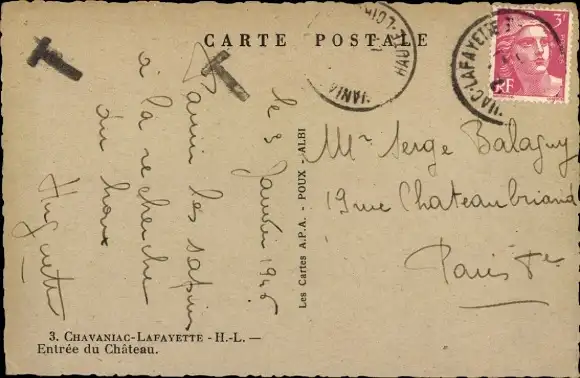 CARTE POSTALE
T
T
HAUTE-LOIRE
CHAVANIAC-LAFAYETTE
3F
RF
le 3 Janvier 1946
Parmi les sapins
à la recherche
du houx
Huguette
Mr Serge Balaguy
19 rue Chateaubriand
Paris
Les Cartes A.P.A. - POUX - ALBI
3. CHAVANIAC-LAFAYETTE - H.-L. —
Entrée du Château.